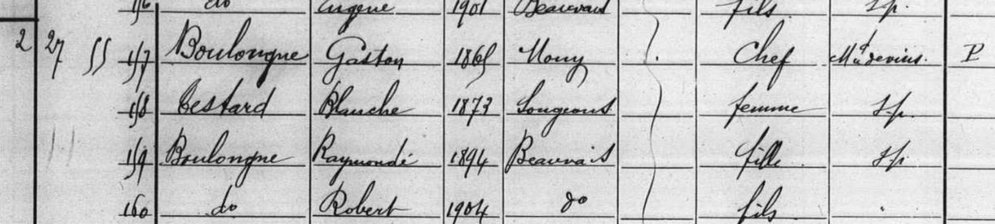 156 do Eugene 1901 Beauvais fils s.p.
2 27 55 157 Boulongne Gaston 1865 Mouy Chef Md devins. P
158 Testard Blanche 1873 Songeons femme s.p.
159 Boulongne Raymonde 1894 Beauvais fille s.p.
160 do Robert 1904 do fils .